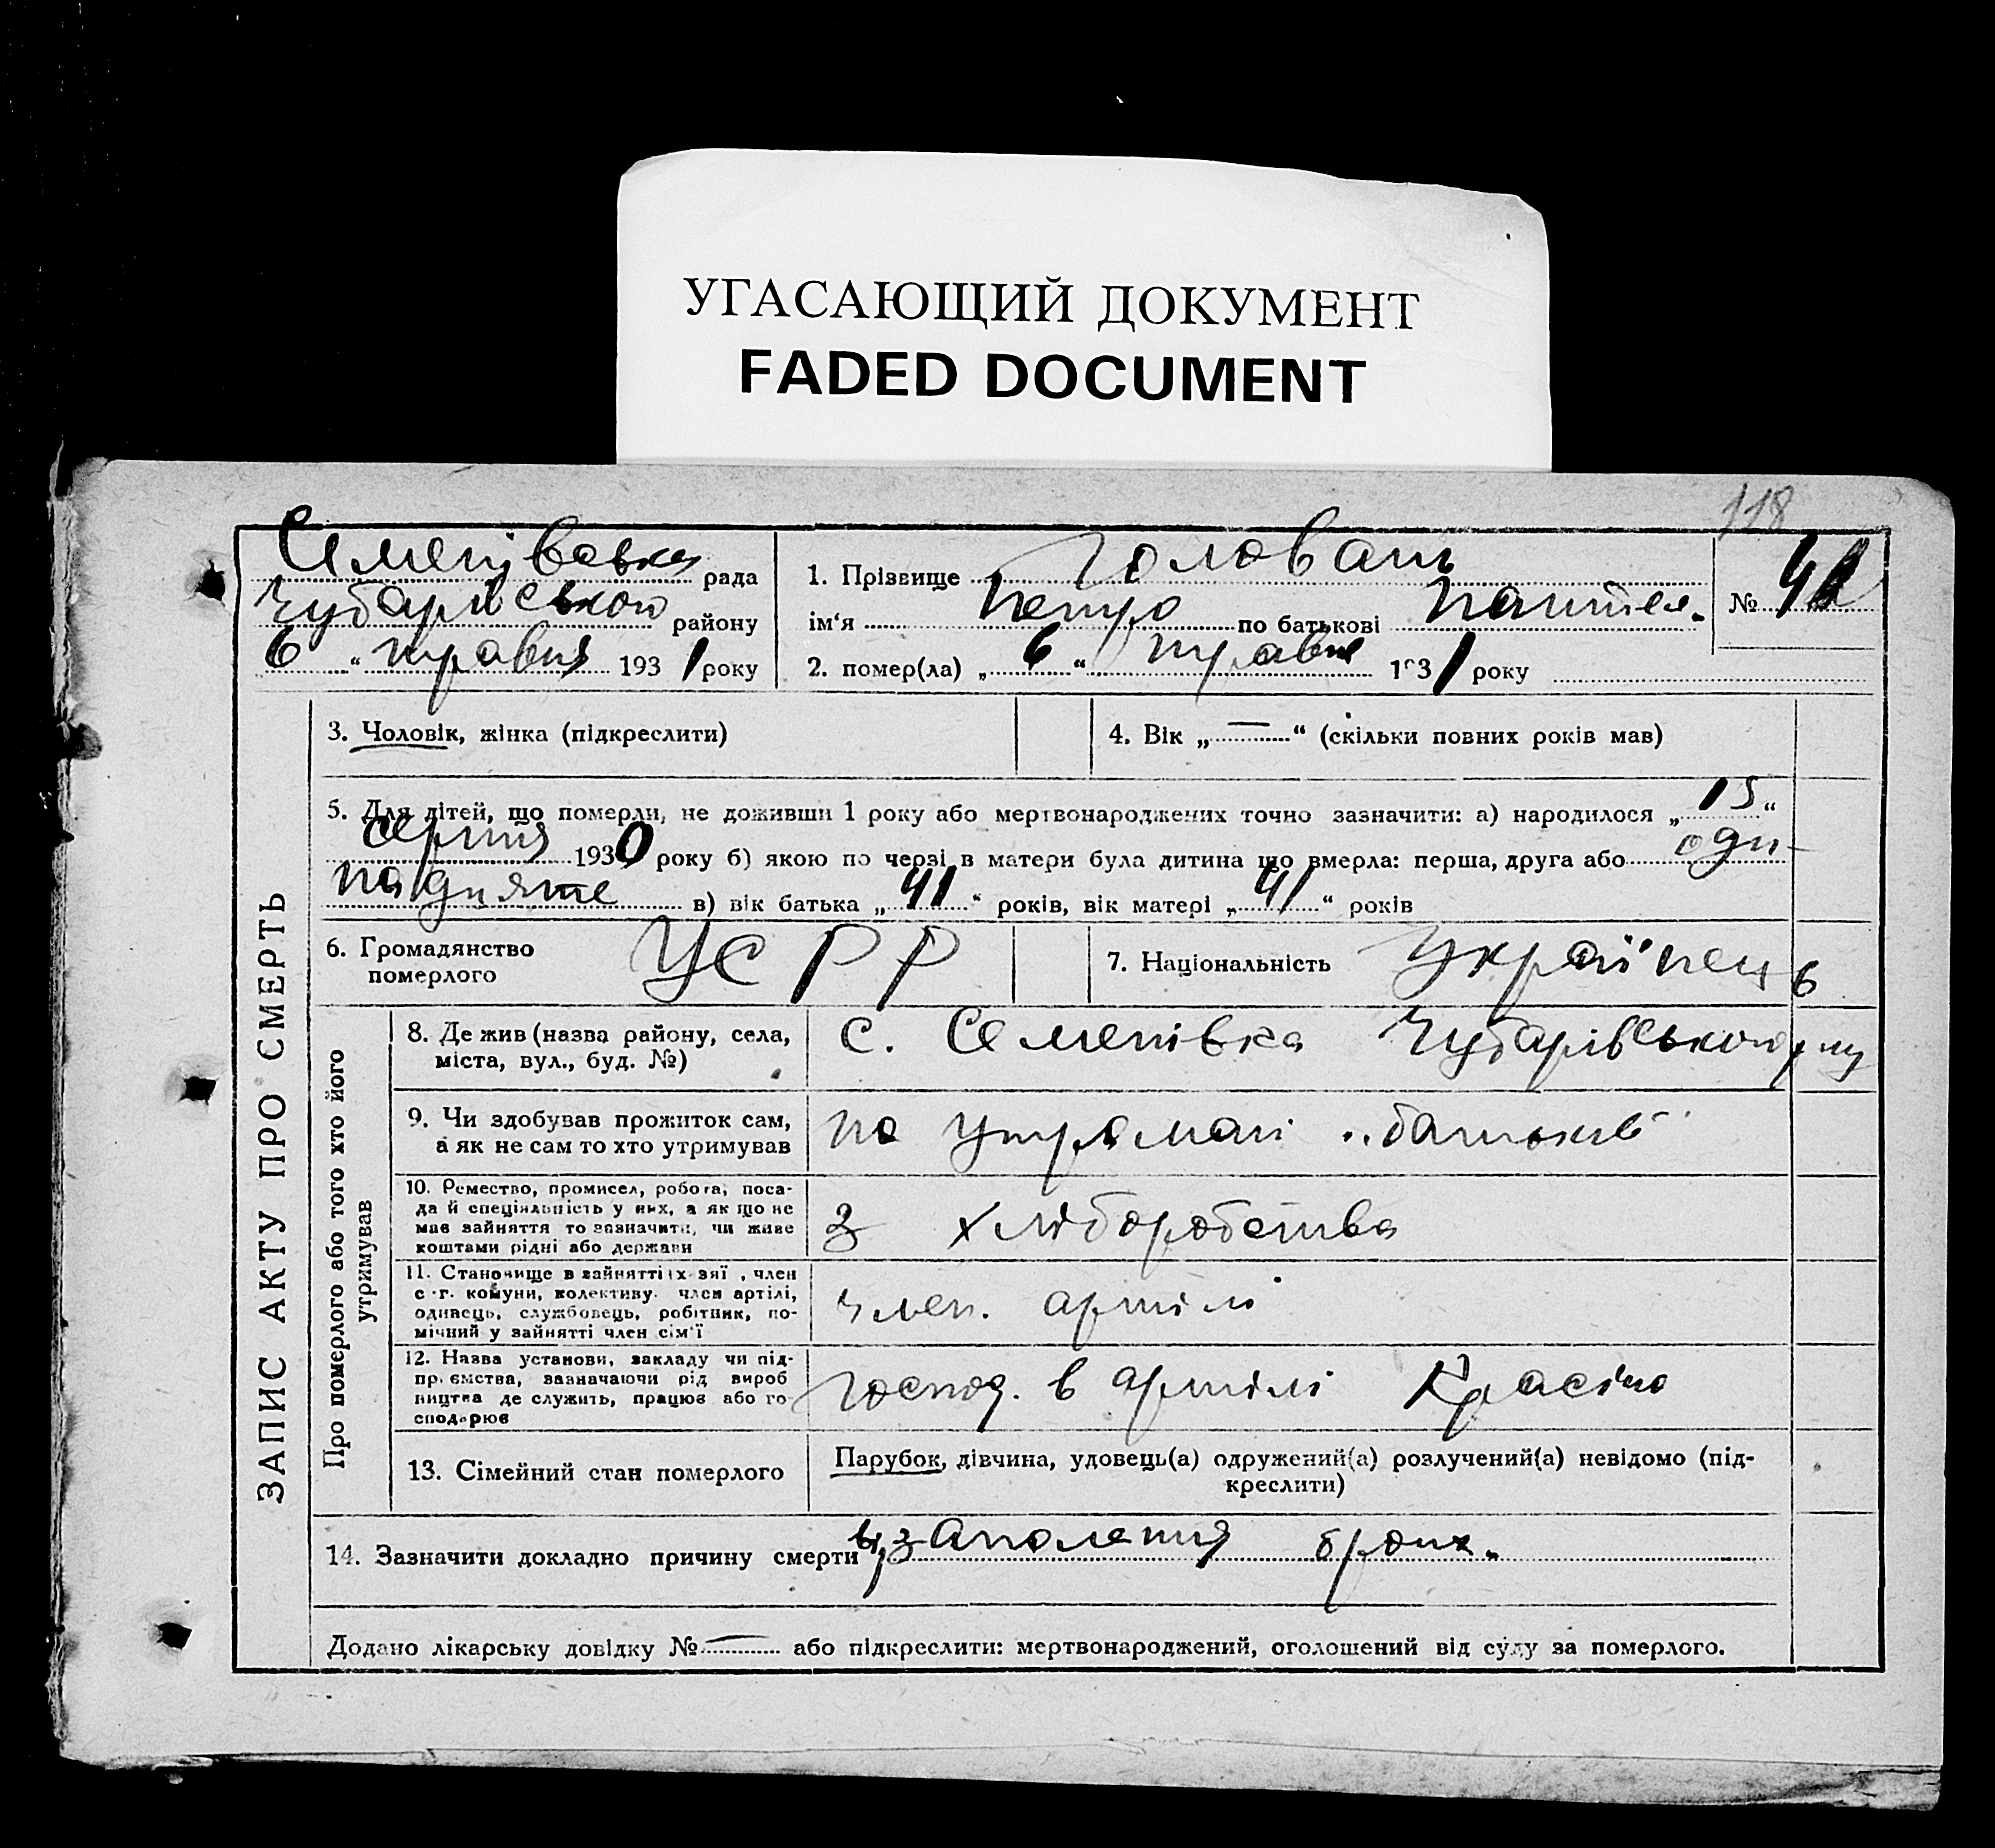 УГАСАЮЩИЙ ДОКУМЕНТ
FADED DOCUMENT
118
Семенівська рада
Чубарівського району
6 " травня 1931 року
1. Прізвище Головань
ім'я Петро по батькові Пантел.
№ 42
2. помер(ла) „ 6 “ травня 1931 року
ЗАПИС АКТУ ПРО СМЕРТЬ
3. Чоловік, жінка (підкреслити)
4. Вік „ — “ (скільки повних років мав)
5. Для дітей, що померли, не доживши 1 року або мертвонароджених точно зазначити: а) народилося „ 15 “
серпня 1930 року б) якою по черзі в матери була дитина що вмерла: перша, друга або оди-
надцяте в) вік батька „ 41 “ років, вік матері „ 41 “ років
6. Громадянство померлого УСРР
7. Національність Українець
Про померлого або того хто його утримував
8. Де жив (назва району, села,
міста, вул., буд. №)
с. Семенівка Чубарівського р-ну
9. Чи здобував прожиток сам,
а як не сам то хто утримував
на утримані батьків
10. Ремество, промисел, робота, поса-
да й спеціяльність у них, а як що не
має зайняття то зазначити, чи живе
коштами рідні або держави
З хліборобства
11. Становище в зайнятті: член
с.-г. комуни, колективу. член артілі,
одинець, службовець, робітник, по-
мічний у зайнятті член сім'ї
член. артілі
12. Назва установи, закладу чи під-
приємства, зазначаючи рід вироб
ництва де служить, працює або го-
сподарює
господ. в артілі Красіна
13. Сімейний стан померлого
Парубок, дівчина, удовець(а) одружений(а) розлучений(а) невідомо (під-
креслити)
14. Зазначити докладно причину смерти від запаленния брон.
Додано лікарську довідку № — або підкреслити: мертвонароджений, оголошений від суду за померлого.